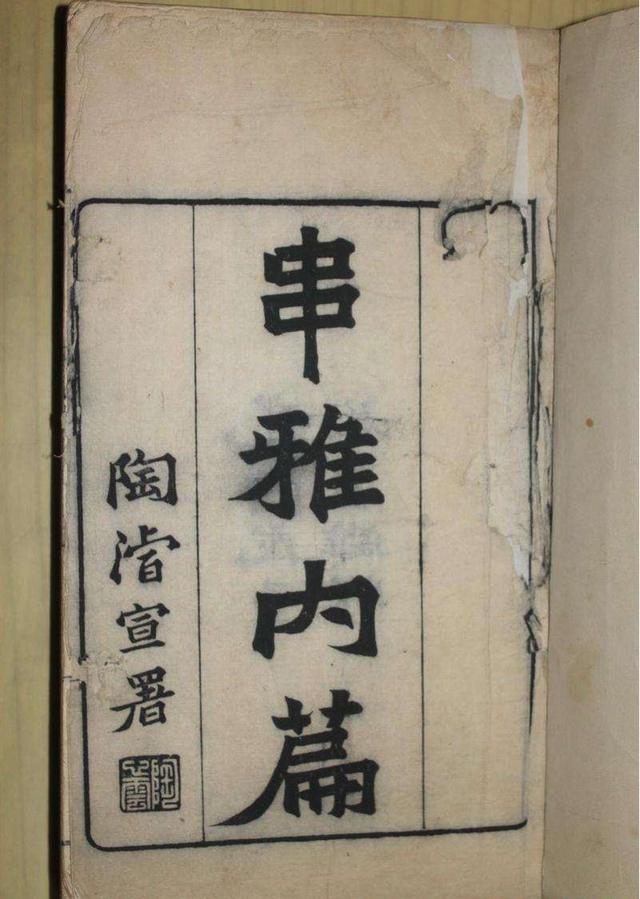 串雅内篇
陶濬宣署